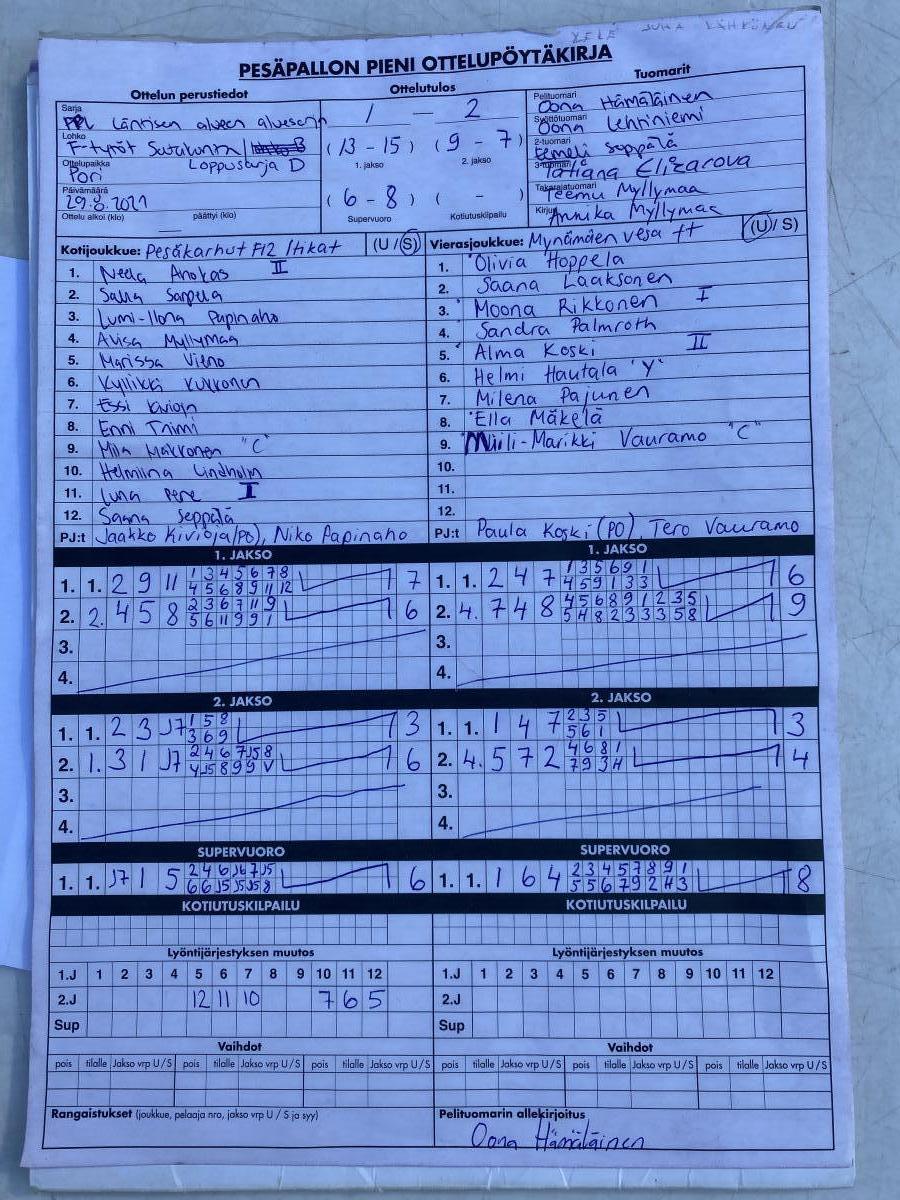 PESÄPALLON PIENI OTTELUPÖYTÄKIRJA
Ottelun perustiedot
Ottelutulos
Tuomarit
Sarja
Läntisen alueen aluesarja
Lohko
F-tytöt Satakunta
Loppusarja D
Ottelupaikka
Pori
Päivämäärä
29.8.2021
Ottelu alkoi (klo) päättyi (klo)
1 — 2
(13 - 15) (9 - 7)
1. jakso 2. jakso
(6 - 8) ( - )
Supervuoro Kotiutuskilpailu
Pelituomari
Oona Hämäläinen
Syöttötuomari
Oona Lehtiniemi
2-tuomari
Eemeli Seppälä
3-tuomari
Tatiana Elizarova
Takarajatuomari
Teemu Myllymaa
Kirjuri
Annika Myllymaa
Kotijoukkue: Pesäkarhut F12 Ihkat (U/S)
1. Neela Anokas II
2. Salla Sarpela
3. Lumi-Ilona Papinaho
4. Avisa Myllymaa
5. Marissa Vieno
6. Kyllikki Kukkonen
7. Essi
8. Enni Tnimi
9. Mila Makkonen "C"
10. Helmiina Lindholm
11. Luna Pere I
12. Saana Seppälä
PJ:t Jaakko Kivioja (PO), Niko Papinaho
Vierasjoukkue: Mynämäen Vesa ft (U/S)
1. Olivia Hoppela
2. Saana Laaksonen
3. Moona Rikkonen I
4. Sandra Palmroth
5. Alma Koski II
6. Helmi Hautala "Y"
7. Milena Pajunen
8. Ella Mäkelä
9. Miili-Marikki Vauramo "C"
10.
11.
12.
PJ:t Paula Koski (PO), Tero Vauramo
1. JAKSO
1. 1. 2 9 11 1 3 4 5 6 7 8 7
4 5 6 8 9 11 12
2. 2. 4 5 8 2 3 6 7 11 9 6
5 6 11 9 9 1
3.
4.
1. JAKSO
1. 1. 2 4 7 1 3 5 6 9 1 6
4 5 9 1 3 3
2. 4. 7 4 8 4 5 6 8 9 1 2 3 5 9
5 4 8 2 3 3 3 5 8
3.
4.
2. JAKSO
1. 1. 2 3 J7 1 5 8 3
3 6 9
2. 1. 3 1 J7 2 4 6 7 J5 8 6
4 J5 8 9 9 V
3.
4.
2. JAKSO
1. 1. 1 4 7 2 3 5 3
5 6 1
2. 4. 5 7 2 4 6 8 1 4
7 9 3 H
3.
4.
SUPERVUORO
1. 1. J7 1 5 2 4 6 J6 7 J5 6
6 6 J5 J5 J5 8
SUPERVUORO
1. 1. 1 6 4 2 3 4 5 7 8 9 1 8
5 5 6 7 9 2 H 3
KOTIUTUSKILPAILU
KOTIUTUSKILPAILU
Lyöntijärjestyksen muutos
1.J 1 2 3 4 5 6 7 8 9 10 11 12
2.J 12 11 10 7 6 5
Sup
Lyöntijärjestyksen muutos
1.J 1 2 3 4 5 6 7 8 9 10 11 12
2.J
Sup
Vaihdot
pois tilalle Jakso vrp U/S pois tilalle Jakso vrp U/S pois tilalle Jakso vrp U/S
Vaihdot
pois tilalle Jakso vrp U/S pois tilalle Jakso vrp U/S pois tilalle Jakso vrp U/S
Rangaistukset (joukkue, pelaaja nro, jakso vrp U / S ja syy)
Pelituomarin allekirjoitus
Oona Hämäläinen